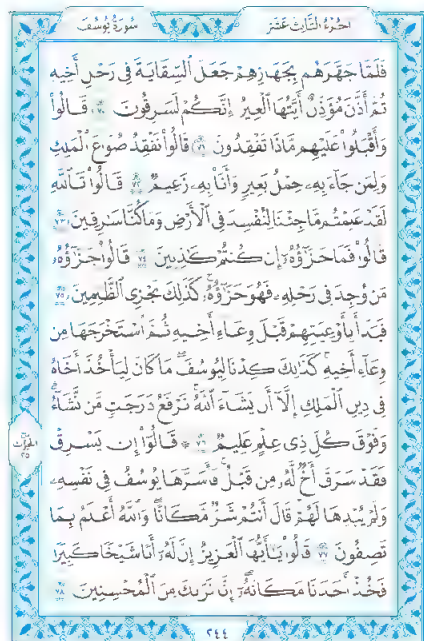 الجزء الثالث عشر
سورة يوسف
فَلَمَّا جَهَّزَهُم بِجَهَازِهِمْ جَعَلَ ٱلسِّقَايَةَ فِى رَحْلِ أَخِيهِ
ثُمَّ أَذَّنَ مُؤَذِّنٌ أَيَّتُهَا ٱلْعِيرُ إِنَّكُمْ لَسَٰرِقُونَ ٧٠ قَالُوا۟
وَأَقْبَلُوا۟ عَلَيْهِم مَّاذَا تَفْقِدُونَ ٧١ قَالُوا۟ نَفْقِدُ صُوَاعَ ٱلْمَلِكِ
وَلِمَن جَآءَ بِهِۦ حِمْلُ بَعِيرٍ وَأَنَا۠ بِهِۦ زَعِيمٌ ٧٢ قَالُوا۟ تَٱللَّهِ
لَقَدْ عَلِمْتُم مَّا جِئْنَا لِنُفْسِدَ فِى ٱلْأَرْضِ وَمَا كُنَّا سَٰرِقِينَ ٧٣
قَالُوا۟ فَمَا جَزَٰٓؤُهُۥٓ إِن كُنتُمْ كَٰذِبِينَ ٧٤ قَالُوا۟ جَزَٰٓؤُهُۥ
مَن وُجِدَ فِى رَحْلِهِۦ فَهُوَ جَزَٰٓؤُهُۥ كَذَٰلِكَ نَجْزِى ٱلظَّٰلِمِينَ ٧٥
فَبَدَأَ بِأَوْعِيَتِهِمْ قَبْلَ وِعَآءِ أَخِيهِ ثُمَّ ٱسْتَخْرَجَهَا مِن
وِعَآءِ أَخِيهِ كَذَٰلِكَ كِدْنَا لِيُوسُفَ مَا كَانَ لِيَأْخُذَ أَخَاهُ
فِى دِينِ ٱلْمَلِكِ إِلَّآ أَن يَشَآءَ ٱللَّهُ نَرْفَعُ دَرَجَٰتٍ مَّن نَّشَآءُ
وَفَوْقَ كُلِّ ذِى عِلْمٍ عَلِيمٌ ٧٦ ۞ قَالُوٓا۟ إِن يَسْرِقْ
فَقَدْ سَرَقَ أَخٌ لَّهُۥ مِن قَبْلُ فَأَسَرَّهَا يُوسُفُ فِى نَفْسِهِۦ
وَلَمْ يُبْدِهَا لَهُمْ قَالَ أَنتُمْ شَرٌّ مَّكَانًا وَٱللَّهُ أَعْلَمُ بِمَا
تَصِفُونَ ٧٧ قَالُوا۟ يَٰٓأَيُّهَا ٱلْعَزِيزُ إِنَّ لَهُۥٓ أَبًا شَيْخًا كَبِيرًا
فَخُذْ أَحَدَنَا مَكَانَهُۥٓ إِنَّا نَرَىٰكَ مِنَ ٱلْمُحْسِنِينَ ٧٨
٢٥
٢٤٤